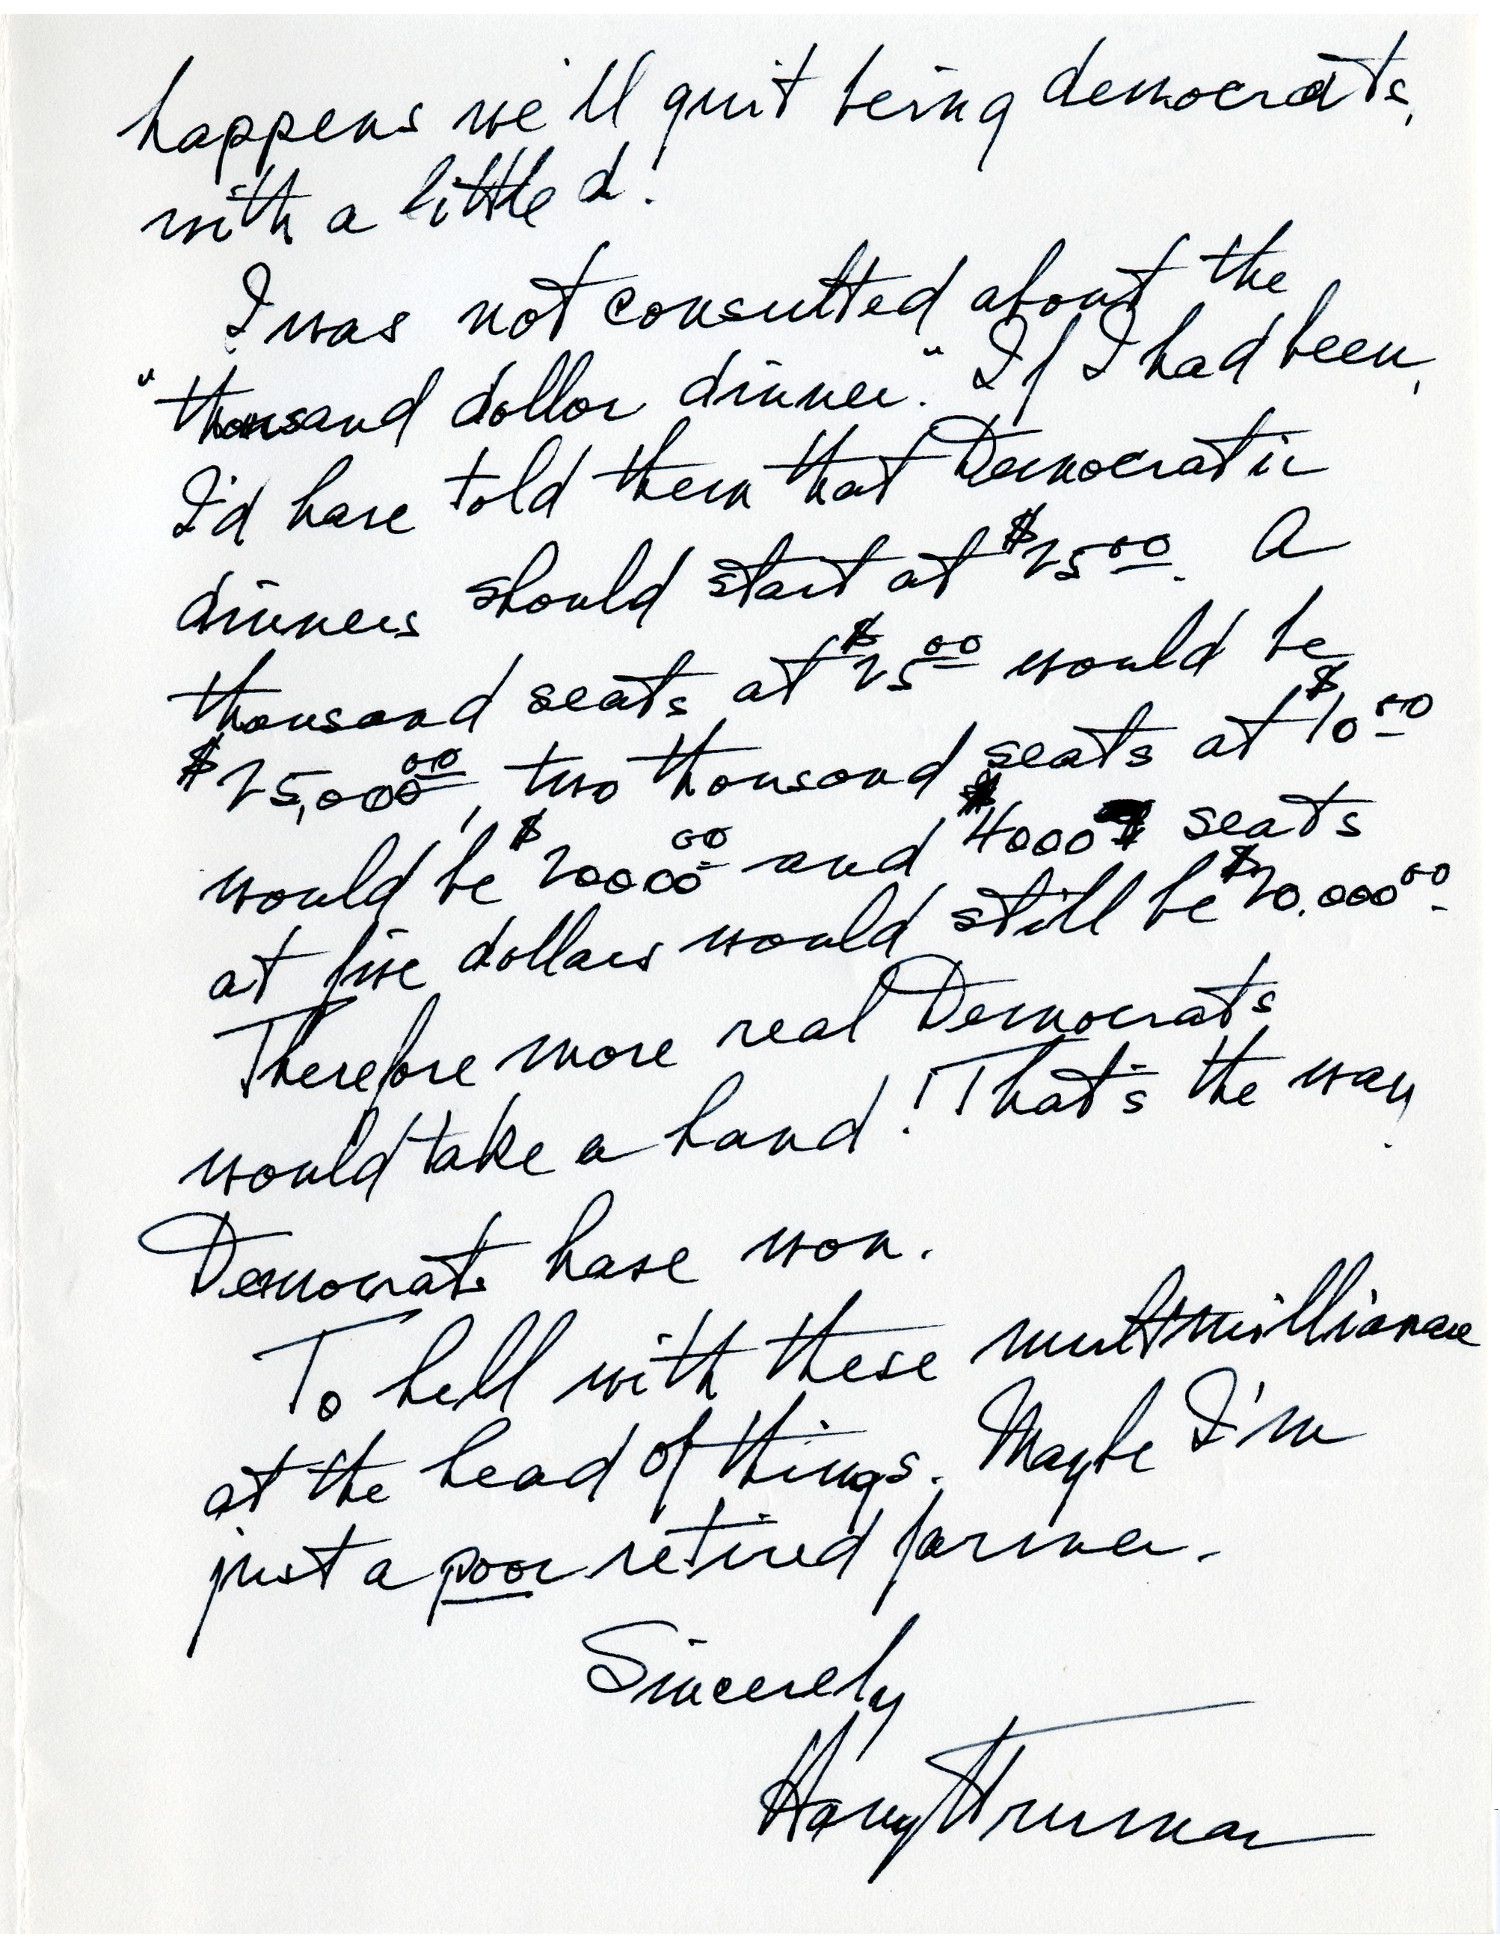 happens we'll quit being democrats,
with a little d.
I was not consulted about the
"thousand dollar dinner." If I had been,
I'd have told them that Democratic
dinners should start at $25 00. A
thousand seats at $25 00 would be
$25,000 00, two thousand seats at $10 00
would be $20000 00 and $4000 seats
at five dollars would still be $20.000 00.
Therefore more real Democrats
would take a hand! That's the way
Democrats have won.
To hell with these multimillionaire
at the head of things. Maybe I'm
just a poor retired farmer.
Sincerely
Harry Truman